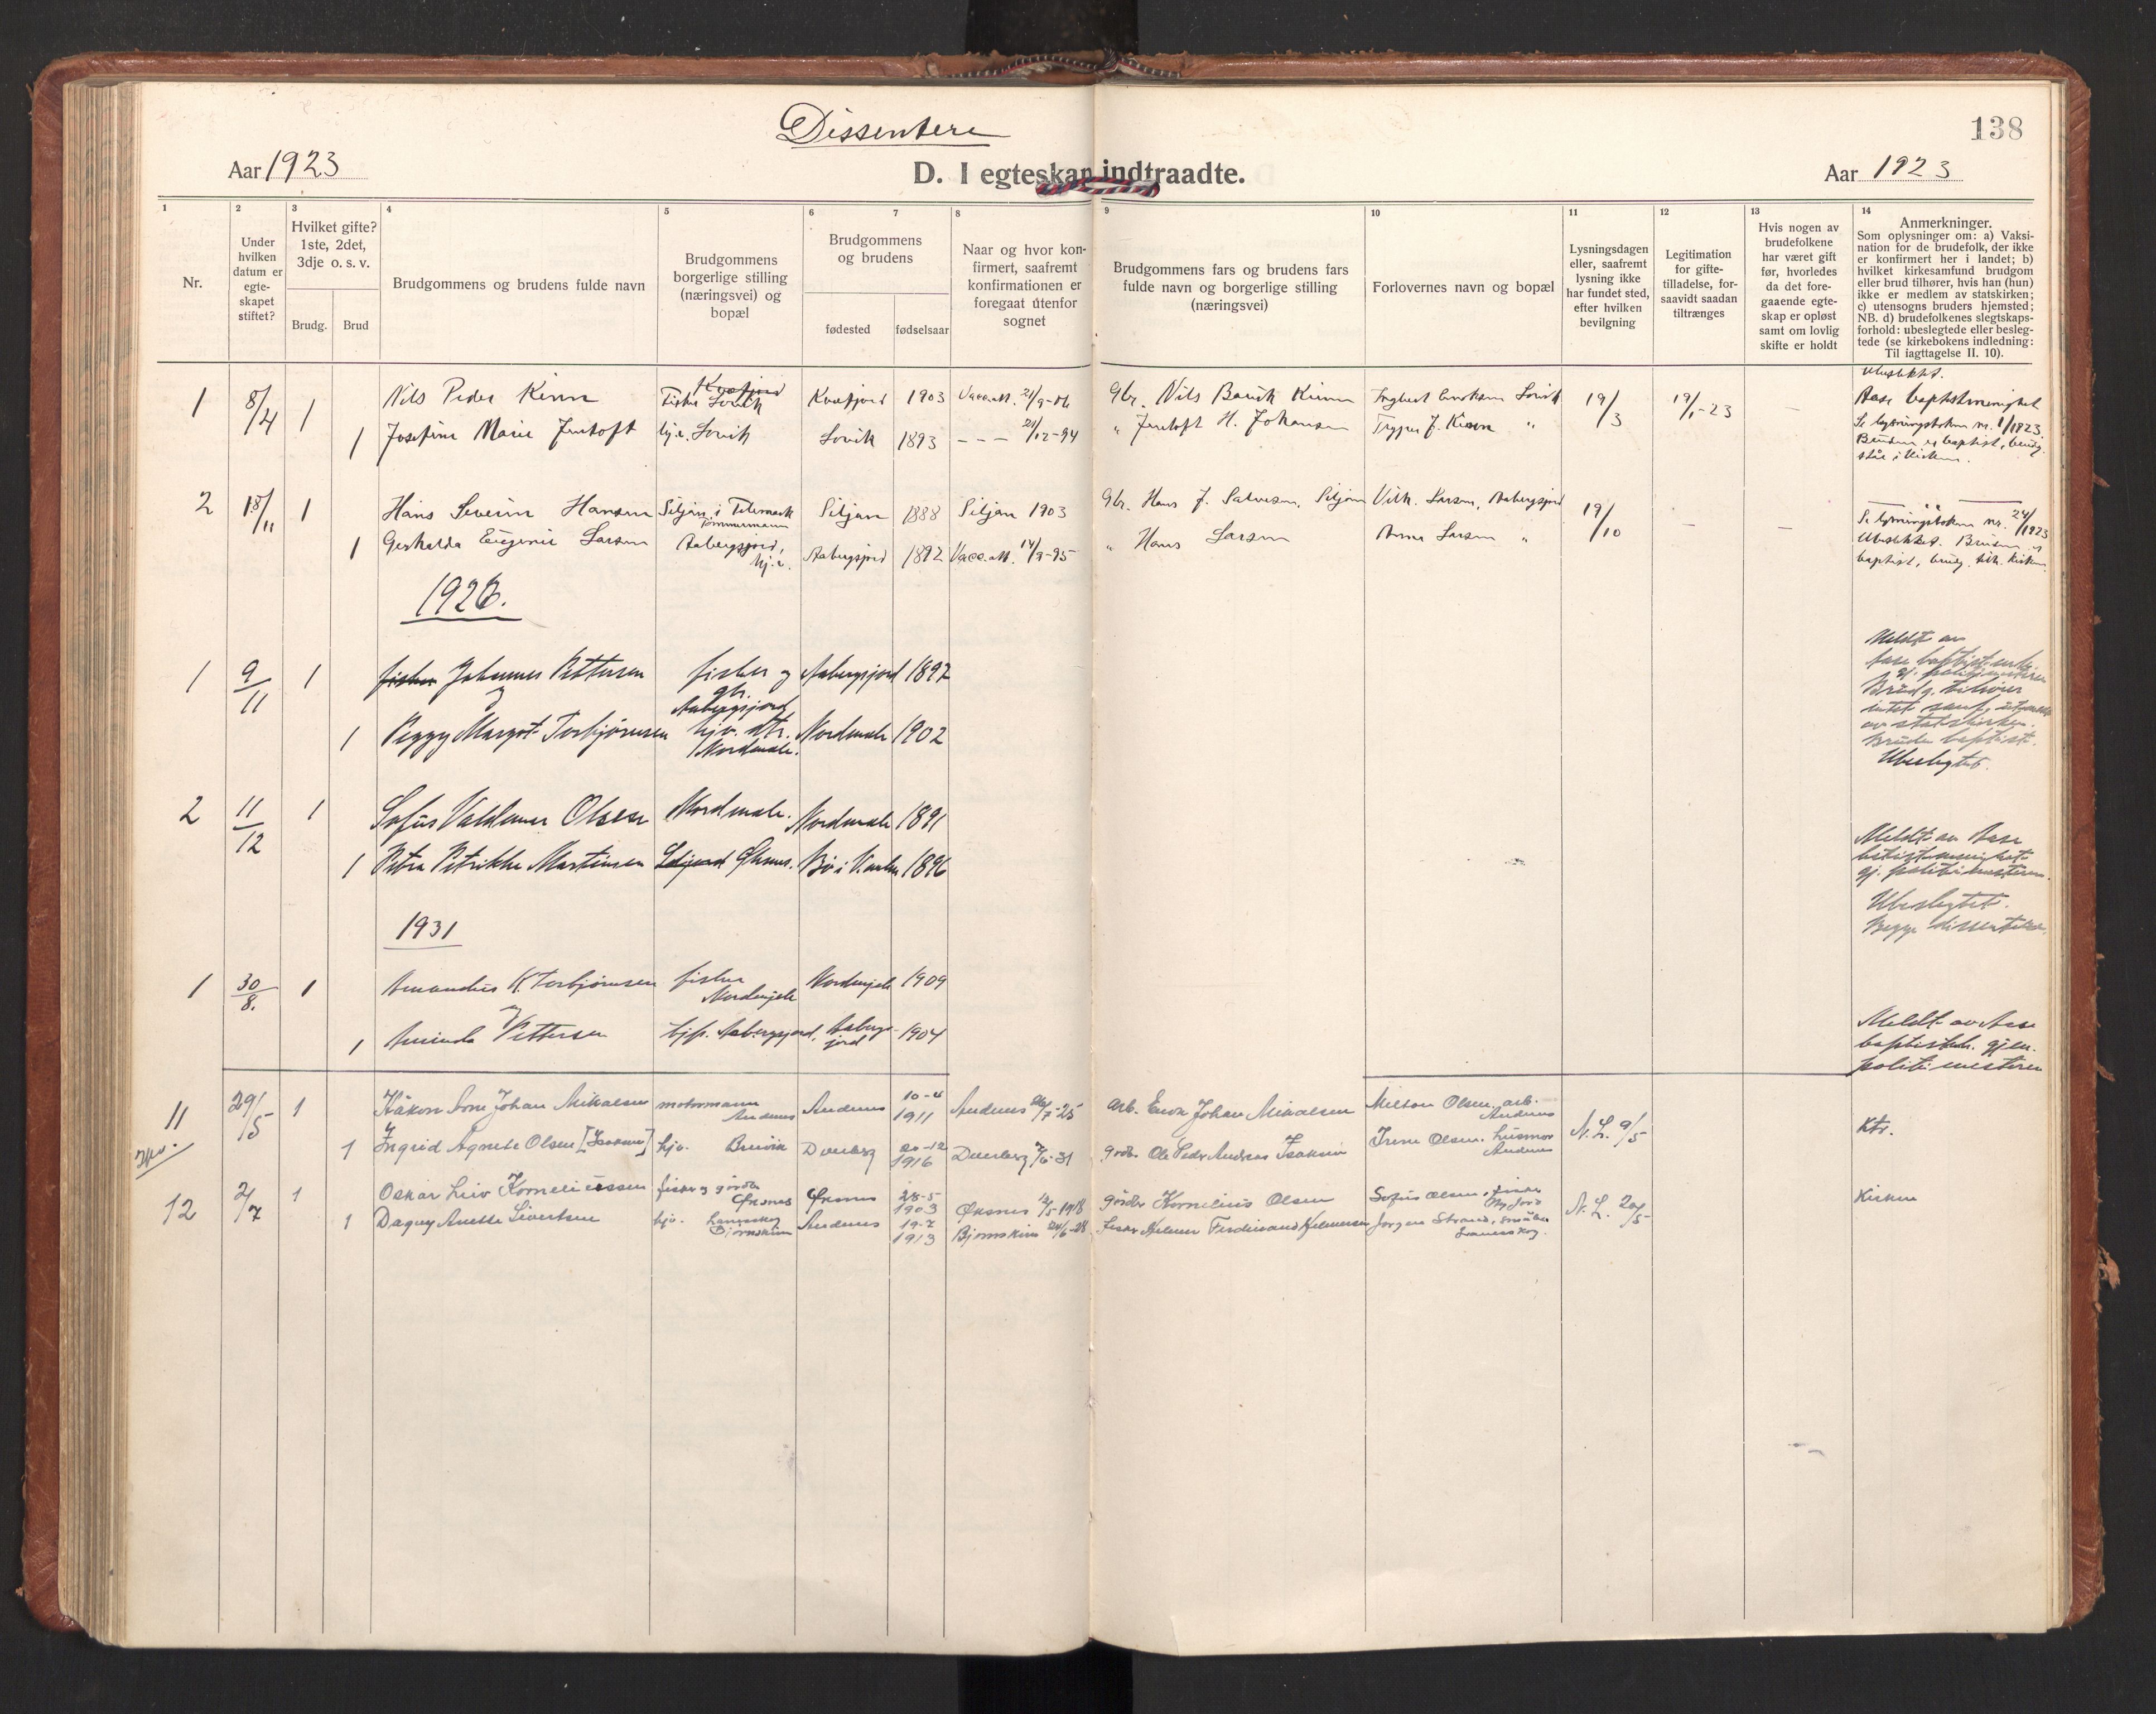 Dissentere
138
Aar 1923
D. I egteskap indtraadte.
Aar 1923
1 2 3 4 5 6 7 8 9 10 11 12 13 14
Nr.
Under
hvilken
datum er
egte-
skapet
stiftet?
Hvilket gifte?
1ste, 2det,
3dje o. s. v.
Brudg.
Brud
Brudgommens og brudens fulde navn
Brudgommens
borgerlige stilling
(næringsvei) og
bopæl
Brudgommens
og brudens
fødested
fødselsaar
Naar og hvor kon-
firmert, saafremt
konfirmationen er
foregaat utenfor
sognet
Brudgommens fars og brudens fars
fulde navn og borgerlige stilling
(næringsvei)
Forlovernes navn og bopæl
Lysningsdagen
eller, saafremt
lysning ikke
har fundet sted,
efter hvilken
bevilgning
Legitimation
for gifte-
tilladelse, for-
saavidt saadan
tiltrænges
Hvis nogen av
brudefolkene
har været gift
før, hvorledes
da det fore-
gaaende egte-
skap er opløst
samt om lovlig
skifte er holdt
Anmerkninger.
Som oplysninger om: a) Vaksi-
nation for de brudefolk, der ikke
er konfirmert her i landet; b)
hvilket kirkesamfund brudgom
eller brud tilhører, hvis han (hun)
ikke er medlem av statskirken;
c) utensogns bruders hjemsted;
NB. d) brudefolkenes slegtskaps-
forhold: ubeslegtede eller besleg-
tede (se kirkebokens indledning:
Til iagttagelse II. 10).
1 8/4 1 Nils Peder Kinn Kvæfjord Fisker Lovik Kvæfjord 1903 Vacc.att. 21/9-06 Gbr. Nils Barik Kinn Lovik 19/3 19/1-23 —
1 Josefine Marie Jentoft hj.e. Lovik Lovik 1893 – – – 21/12-94 " Jentoft H. Johansen Trygve J. Kinn "
Aase baptistmenighet
Se lysningsboken nr. 1/1923
Bruden er baptist, brudg.
2 18/11 1 Hans Severin Hansen Siljan i Telemark Tømmermann Siljan 1888 Siljan 1903 Gbr. Hans J. Salvesen, Siljan Vilh. Larsen, Aabergsjord 19/10 – –
1 Eugenie Larsen Aabergsjord, hj.e. Aabergsjord 1892 Vacc.att. 14/9-95 " Hans Larsen Anna Larsen "
Se lysningsboken nr. 24/1923
Ubeslektet. Bruden er
baptist, brudg. tilh. kirken
1926.
1 9/11 1 fisker Johannes Pettersen fisker og gbr. Aabergsjord Aabergsjord 1897
og
1 Peggy Margot Torbjørnsen hjv. dtr. Nordmele. Nordmele 1902
Meldt av
Aase baptistmh.
gj. politimesteren
Brudg. tilhører
intet samf., utmeldt
av statskirken.
Bruden baptist.
Ubeslegtet.
2 11/12 1 Sofus Valdemar Olsen Nordmele. Nordmele 1891
1 Petra Petrikke Martinsen Øksnes. Bø i V.aalen 1896
Meldt av Aase
baptistmenighet
gj. politimesteren.
Ubeslegtet.
Begge dissentere.
1931
1 30/8. 1 Amandus K. Torbjørnsen fisker Nordmjele Nordmjele 1909
og
1 Aminda Pettersen hjp. Aabergsjord, Aabergsjord 1904
Meldt av Aase
baptistmh. gjen.
politimesteren
11 29/5 1 Håkon Arne Johan Mikalsen motormann Andenes Andenes 10-4 1911 Andenes 26/7-25 arb. Johan Mikalsen Milton Olsen, arb. Andenes N.L. 9/5 Ktr.
og
1 Ingrid Agnete Olsen [Isaksen] hjv. Breivik Dverberg 20-12 1916 Dverberg 7/6-31 grdbr. Ole Peder Andreas Isaksen Irene Olsen, husmor Andenes
12 2/7 1 Oskar Liev Korneliussen fisker og gårdbr. Øksnes Øksnes 28-5 1903 Øksnes 12/5-1918 gårdbr. Kornelius Olsen Sofus Olsen, fisker N.L. 20/5 Kirken
1 Dagny Anette Sivertsen hjv. Lanesskog Bjørnskinn Andenes 19-7 1913 Bjørnskinn 24/6-28 fisker Hilmar Ferdinand Hilmersen Jørgen Strand, småbr. Lanesskog.